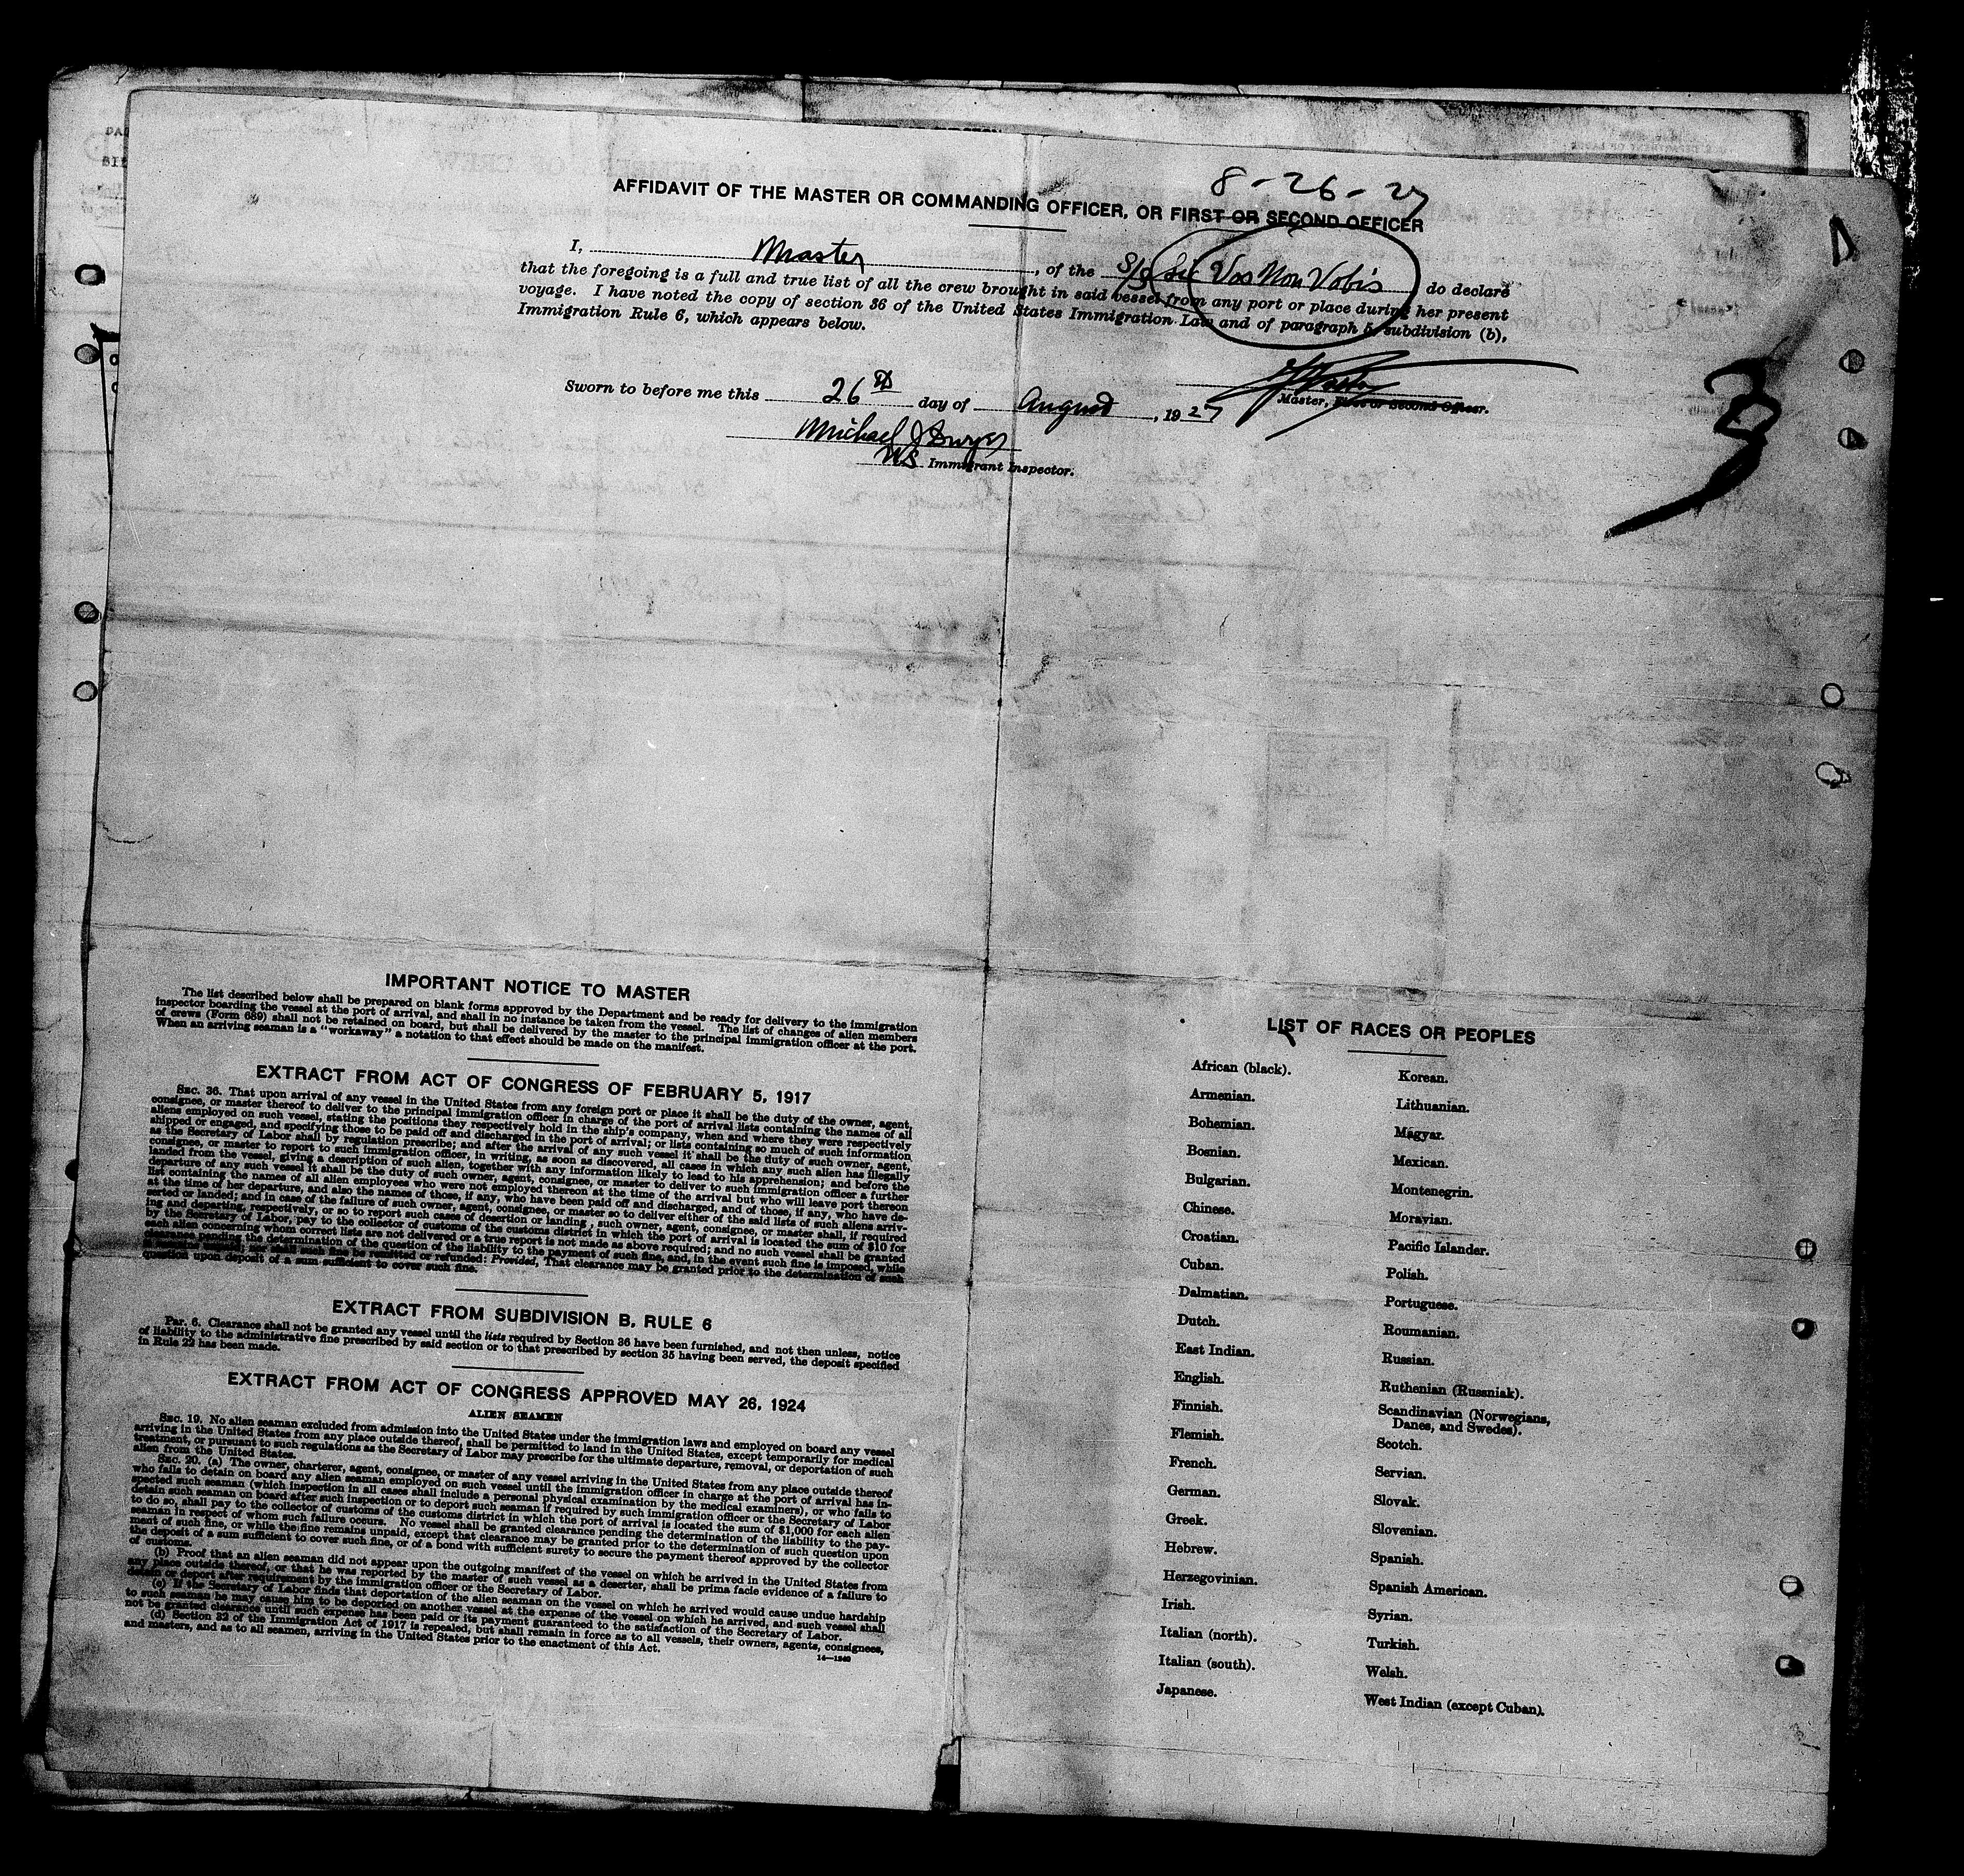 8-26-27
AFFIDAVIT OF THE MASTER OR COMMANDING OFFICER, OR FIRST OR SECOND OFFICER
I, Master, of the S/S Sic Vos Non Vobis do declare
that the foregoing is a full and true list of all the crew brought in said vessel from any port or place during her present
voyage. I have noted the copy of section 36 of the United States Immigration Law and of paragraph 5, subdivision (b),
Immigration Rule 6, which appears below.
Master, First or Second Officer.
Sworn to before me this 26th day of August, 1927
Michael J
US Immigrant Inspector.
3
IMPORTANT NOTICE TO MASTER
The list described below shall be prepared on blank forms approved by the Department and be ready for delivery to the immigration
inspector boarding the vessel at the port of arrival, and shall in no instance be taken from the vessel. The list of changes of alien members
of crews (Form 689) shall not be retained on board, but shall be delivered by the master to the principal immigration officer at the port.
When an arriving seaman is a "workaway" a notation to that effect should be made on the manifest.
EXTRACT FROM ACT OF CONGRESS OF FEBRUARY 5, 1917
SEC. 36. That upon arrival of any vessel in the United States from any foreign port or place it shall be the duty of the owner, agent,
consignee, or master thereof to deliver to the principal immigration officer in charge of the port of arrival lists containing the names of all
aliens employed on such vessel, stating the positions they respectively hold in the ship's company, when and where they were respectively
shipped or engaged, and specifying those to be paid off and discharged in the port of arrival; or lists containing so much of such information
as the Secretary of Labor shall by regulation prescribe; and after the arrival of any such vessel it shall be the duty of such owner, agent,
consignee, or master to report to such immigration officer, in writing, as soon as discovered, all cases in which any such alien has illegally
landed from the vessel, giving a description of such alien, together with any information likely to lead to his apprehension; and before the
departure of any such vessel it shall be the duty of such owner, agent, consignee, or master to deliver to such immigration officer a further
list containing the names of all alien employees who were not employed thereon at the time of the arrival but who will leave port thereon
at the time of her departure, and also the names of those, if any, who have been paid off and discharged, and of those, if any, who have de-
serted or landed; and in case of the failure of such owner, agent, consignee, or master so to deliver either of the said lists of such aliens arriv-
ing and departing, respectively, or so to report such cases of desertion or landing, such owner, agent, consignee, or master, shall, if required
by the Secretary of Labor, pay to the collector of customs of the customs district in which the port of arrival is located the sum of $10 for
each alien concerning whom correct lists are not delivered or a true report is not made as above required; and no such vessel shall be granted
clearance pending the determination of the question of the liability to the payment of such fine, and, in the event such fine is imposed, while
nor shall such fine be remitted or refunded: Provided, That clearance may be granted prior to the determination of such
question upon deposit of a sum sufficient to cover such fine.
EXTRACT FROM SUBDIVISION B, RULE 6
Par. 6. Clearance shall not be granted any vessel until the lists required by Section 36 have been furnished, and not then unless, notice
of liability to the administrative fine prescribed by said section or to that prescribed by section 35 having been served, the deposit specified
in Rule 22 has been made.
EXTRACT FROM ACT OF CONGRESS APPROVED MAY 26, 1924
ALIEN SEAMEN
SEC. 19. No alien seaman excluded from admission into the United States under the immigration laws and employed on board any vessel
arriving in the United States from any place outside thereof, shall be permitted to land in the United States, except temporarily for medical
treatment, or pursuant to such regulations as the Secretary of Labor may prescribe for the ultimate departure, removal, or deportation of such
alien from the United States.
SEC. 20. (a) The owner, charterer, agent, consignee, or master of any vessel arriving in the United States from any place outside thereof
who fails to detain on board any alien seaman employed on such vessel until the immigration officer in charge at the port of arrival has in-
spected such seaman (which inspection in all cases shall include a personal physical examination by the medical examiners), or who fails to
detain such seaman on board after such inspection or to deport such seaman if required by such immigration officer or the Secretary of Labor
to do so, shall pay to the collector of customs of the customs district in which the port of arrival is located the sum of $1,000 for each alien
seaman in respect of whom such failure occurs. No vessel shall be granted clearance pending the determination of the liability to the pay-
ment of such fine, or while the fine remains unpaid, except that clearance may be granted prior to the determination of such question upon
the deposit of a sum sufficient to cover such fine, or of a bond with sufficient surety to secure the payment thereof approved by the collector
of customs.
(b) Proof that an alien seaman did not appear upon the outgoing manifest of the vessel on which he arrived in the United States from
any place outside thereof, or that he was reported by the master of such vessel as a deserter, shall be prima facie evidence of a failure to
detain or deport after requirement by the immigration officer or the Secretary of Labor.
(c) If the Secretary of Labor finds that deportation of the alien seaman on the vessel on which he arrived would cause undue hardship
to such seaman he may cause him to be deported on another vessel at the expense of the vessel on which he arrived, and such vessel shall
not be granted clearance until such expense has been paid or its payment guaranteed to the satisfaction of the Secretary of Labor.
(d) Section 32 of the Immigration Act of 1917 is repealed, but shall remain in force as to all vessels, their owners, agents, consignees,
and masters, and as to all seamen, arriving in the United States prior to the enactment of this Act.
14—1240
LIST OF RACES OR PEOPLES
African (black).
Armenian.
Bohemian.
Bosnian.
Bulgarian.
Chinese.
Croatian.
Cuban.
Dalmatian.
Dutch.
East Indian.
English.
Finnish.
Flemish.
French.
German.
Greek.
Hebrew.
Herzegovinian.
Irish.
Italian (north).
Italian (south).
Japanese.
Korean.
Lithuanian.
Magyar.
Mexican.
Montenegrin.
Moravian.
Pacific Islander.
Polish.
Portuguese.
Roumanian.
Russian.
Ruthenian (Russniak).
Scandinavian (Norwegians,
Danes, and Swedes).
Scotch.
Servian.
Slovak.
Slovenian.
Spanish.
Spanish American.
Syrian.
Turkish.
Welsh.
West Indian (except Cuban).